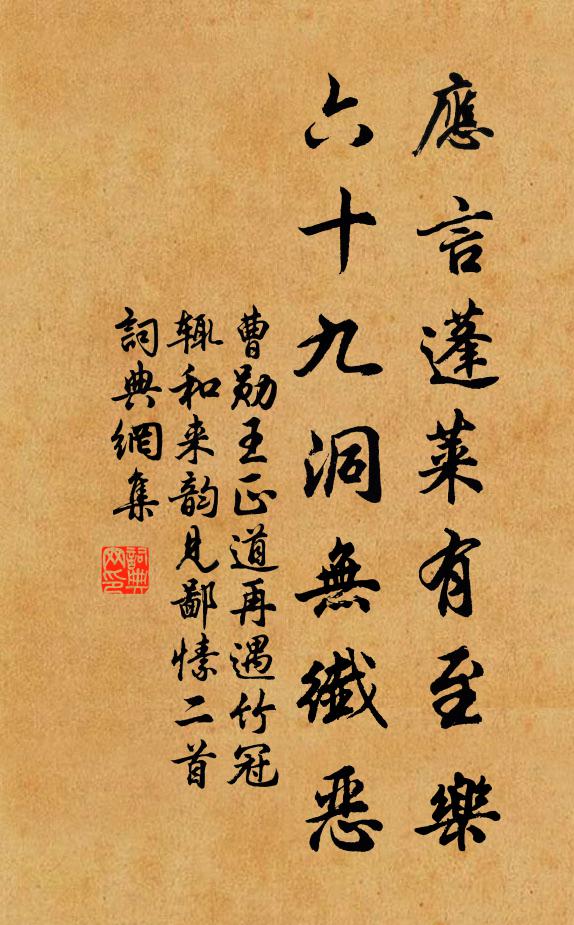 應言蓬萊有至樂
六十九洞無纖惡
曹勋王正道再遇竹冠
辄和来韵见鄙愫二首
詞典網集
詞典網印